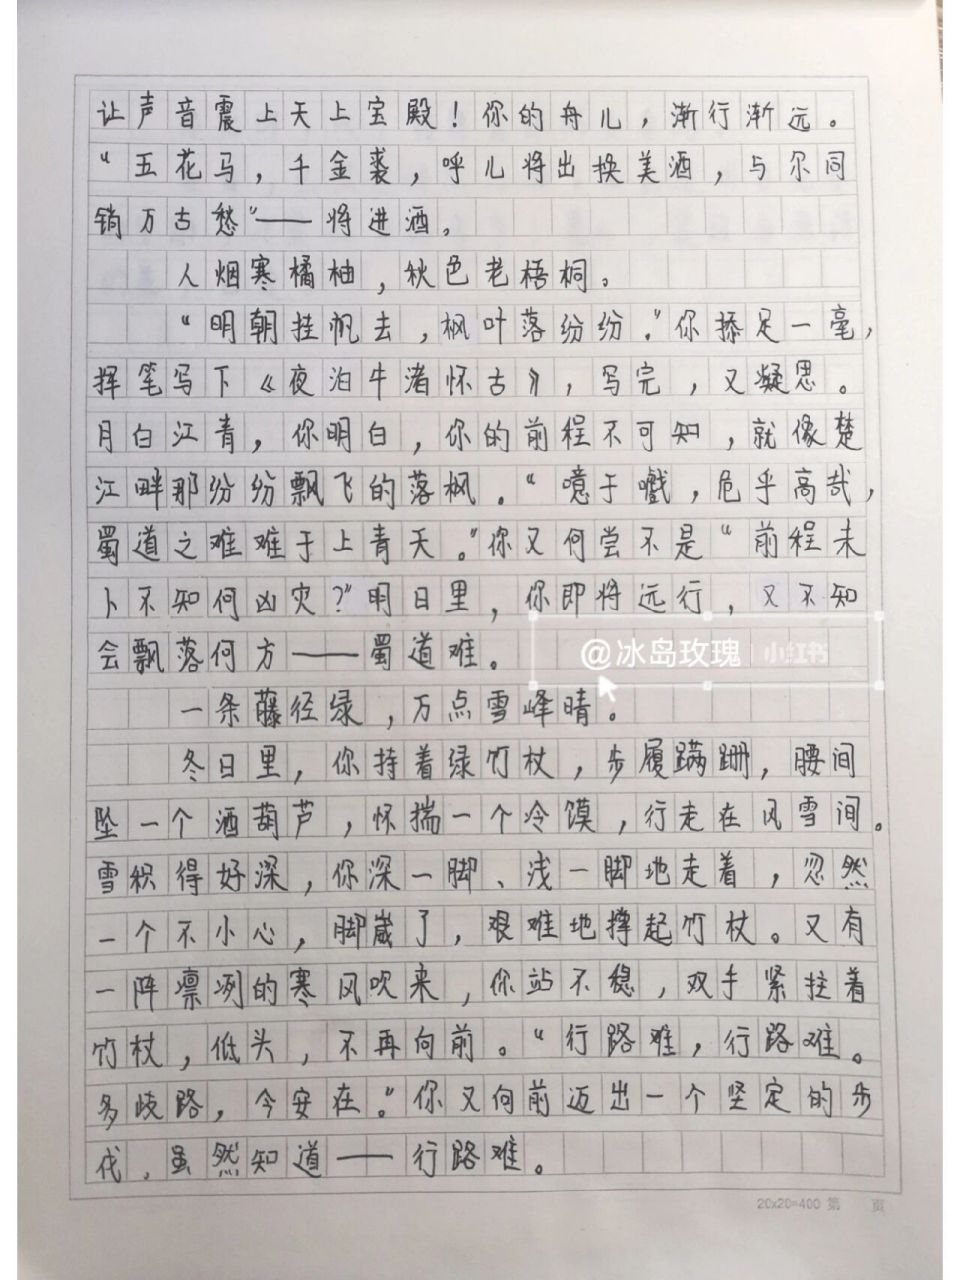 让声音震上天上宝殿！你的舟儿，渐行渐远。
“五花马，千金裘，呼儿将出换美酒，与尔同
销万古愁”——将进酒。
人烟寒橘柚，秋色老梧桐。
“明朝挂帆去，枫叶落纷纷。”你捺足一毫，
挥笔写下《夜泊牛渚怀古》，写完，又凝思。
月白江青，你明白，你的前程不可知，就像楚
江畔那纷纷飘飞的落枫。“噫于戲，危乎高哉，
蜀道之难难于上青天。”你又何尝不是“前程未
卜不知何凶灾？”明日里，你即将远行，又不知
会飘落何方——蜀道难。
@冰岛玫瑰 小红书
一条藤径绿，万点雪峰晴。
冬日里，你持着绿竹杖，步履蹒跚，腰间
坠一个酒葫芦，怀揣一个冷馍，行走在风雪间。
雪积得好深，你深一脚、浅一脚地走着，忽然
一个不小心，脚崴了，艰难地撑起竹杖。又有
一阵凛冽的寒风吹来，你站不稳，双手紧拄着
竹杖，低头，不再向前。“行路难，行路难。
多歧路，今安在。”你又向前迈出一个坚定的步
伐，虽然知道——行路难。
20x20=400 第 页